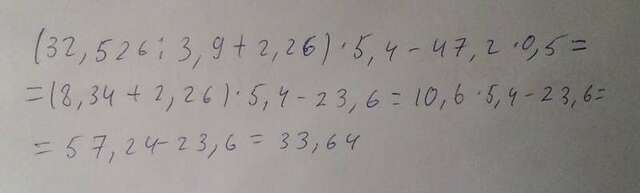 (32,526 : 3,9 + 2,26) · 5,4 - 47,2 · 0,5 =
= (8,34 + 2,26) · 5,4 - 23,6 = 10,6 · 5,4 - 23,6 =
= 57,24 - 23,6 = 33,64